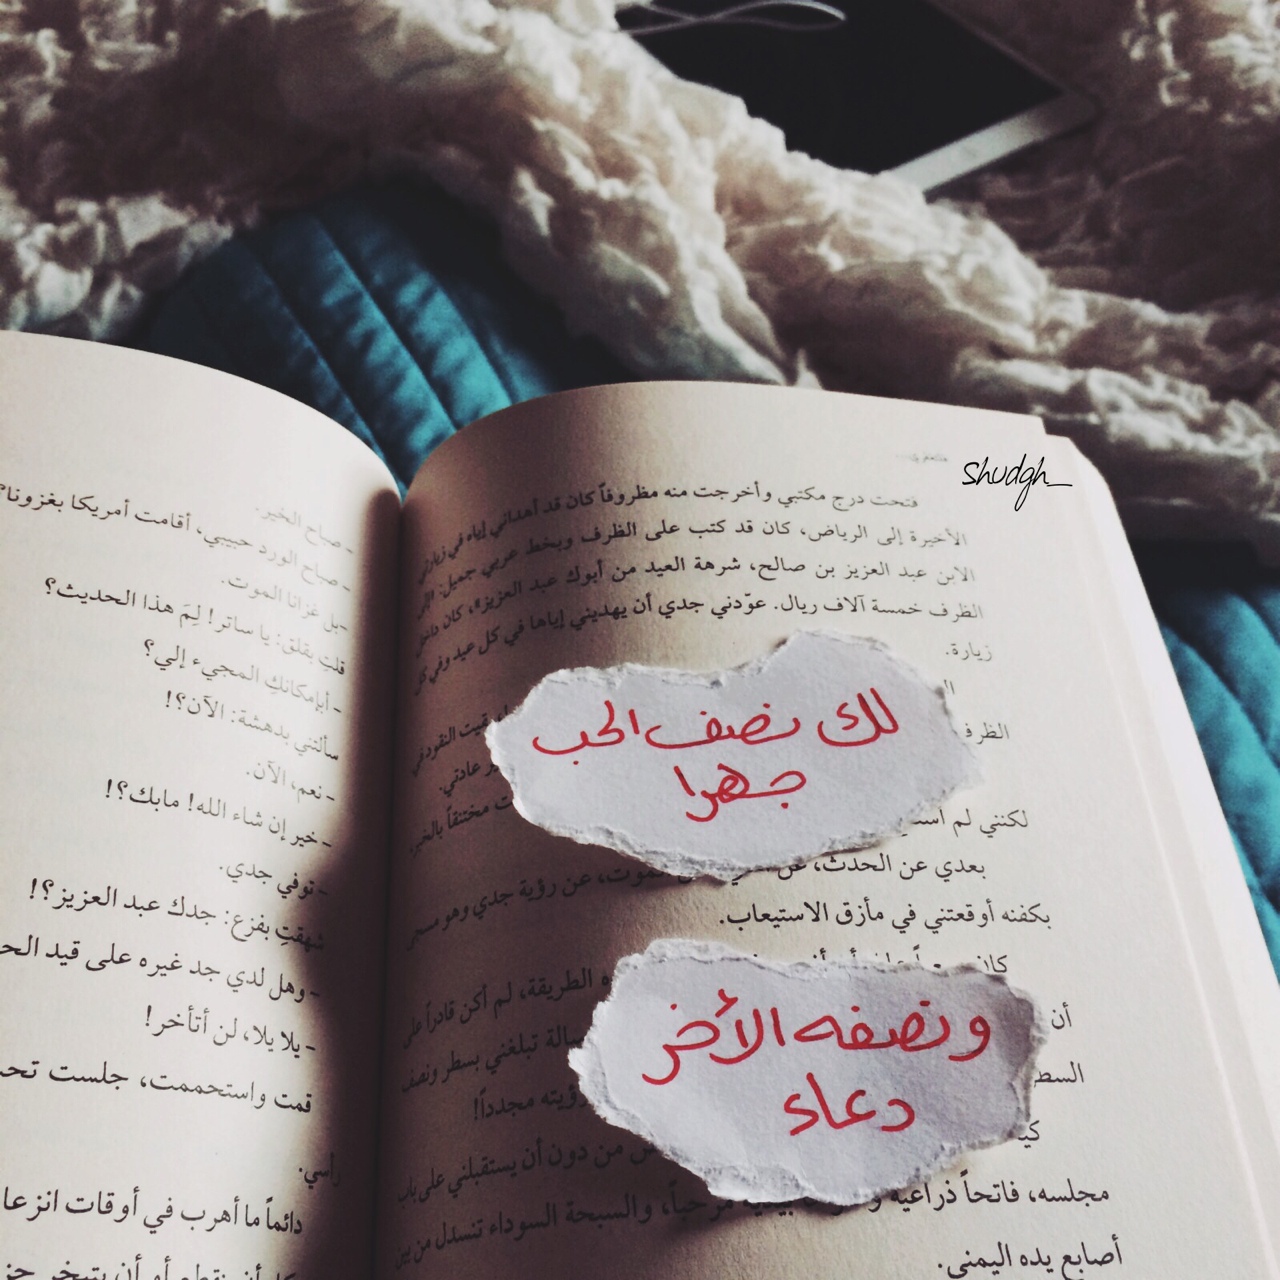 shudgh_
فتحت درج مكتبي وأخرجت منه مظروفاً كان قد أهداني إياه في زيارتي
الأخيرة إلى الرياض، كان قد كتب على الظرف وبخط عربي جميل:
الابن عبد العزيز بن صالح، شرهة العيد من أبوك عبد العزيز»، كان داخل
الظرف خمسة آلاف ريال. عوّدني جدي أن يهديني إياها في كل عيد وفي كل
زيارة.
لك نصف الحب
جهرا
الظرف بقيت النقود في
عادتي.
لكنني لم مختنقاً بالخبر.
بعدي عن الحدث، عن رؤية جدي وهو مسجى
بكفنه أوقعتني في مأزق الاستيعاب.
ونصفه الأخر
دعاء
كان
أن الطريقة، لم أكن قادراً على
تبلغني بسطر ونصف
رؤيته مجدداً!
من دون أن يستقبلني على باب
مجلسه، فاتحاً ذراعيه مرحباً، والسبحة السوداء تنسدل من بين
أصابع يده اليمنى.
- صباح الخير.
- صباح الورد حبيبي، أقامت أمريكا بغزونا؟
- بل غزانا الموت.
قلتِ بقلق: يا ساتر! لِمَ هذا الحديث؟
- أبإمكانكِ المجيء إلي؟
سألتني بدهشة: الآن؟!
- نعم، الآن.
- خير إن شاء الله! مابك؟!
- توفي جدي.
شهقتِ بفزع: جدك عبد العزيز؟!
- وهل لدي جد غيره على قيد
- يلا يلا، لن أتأخر!
قمت واستحممت، جلست
رأسي.
دائماً ما أهرب في أوقات